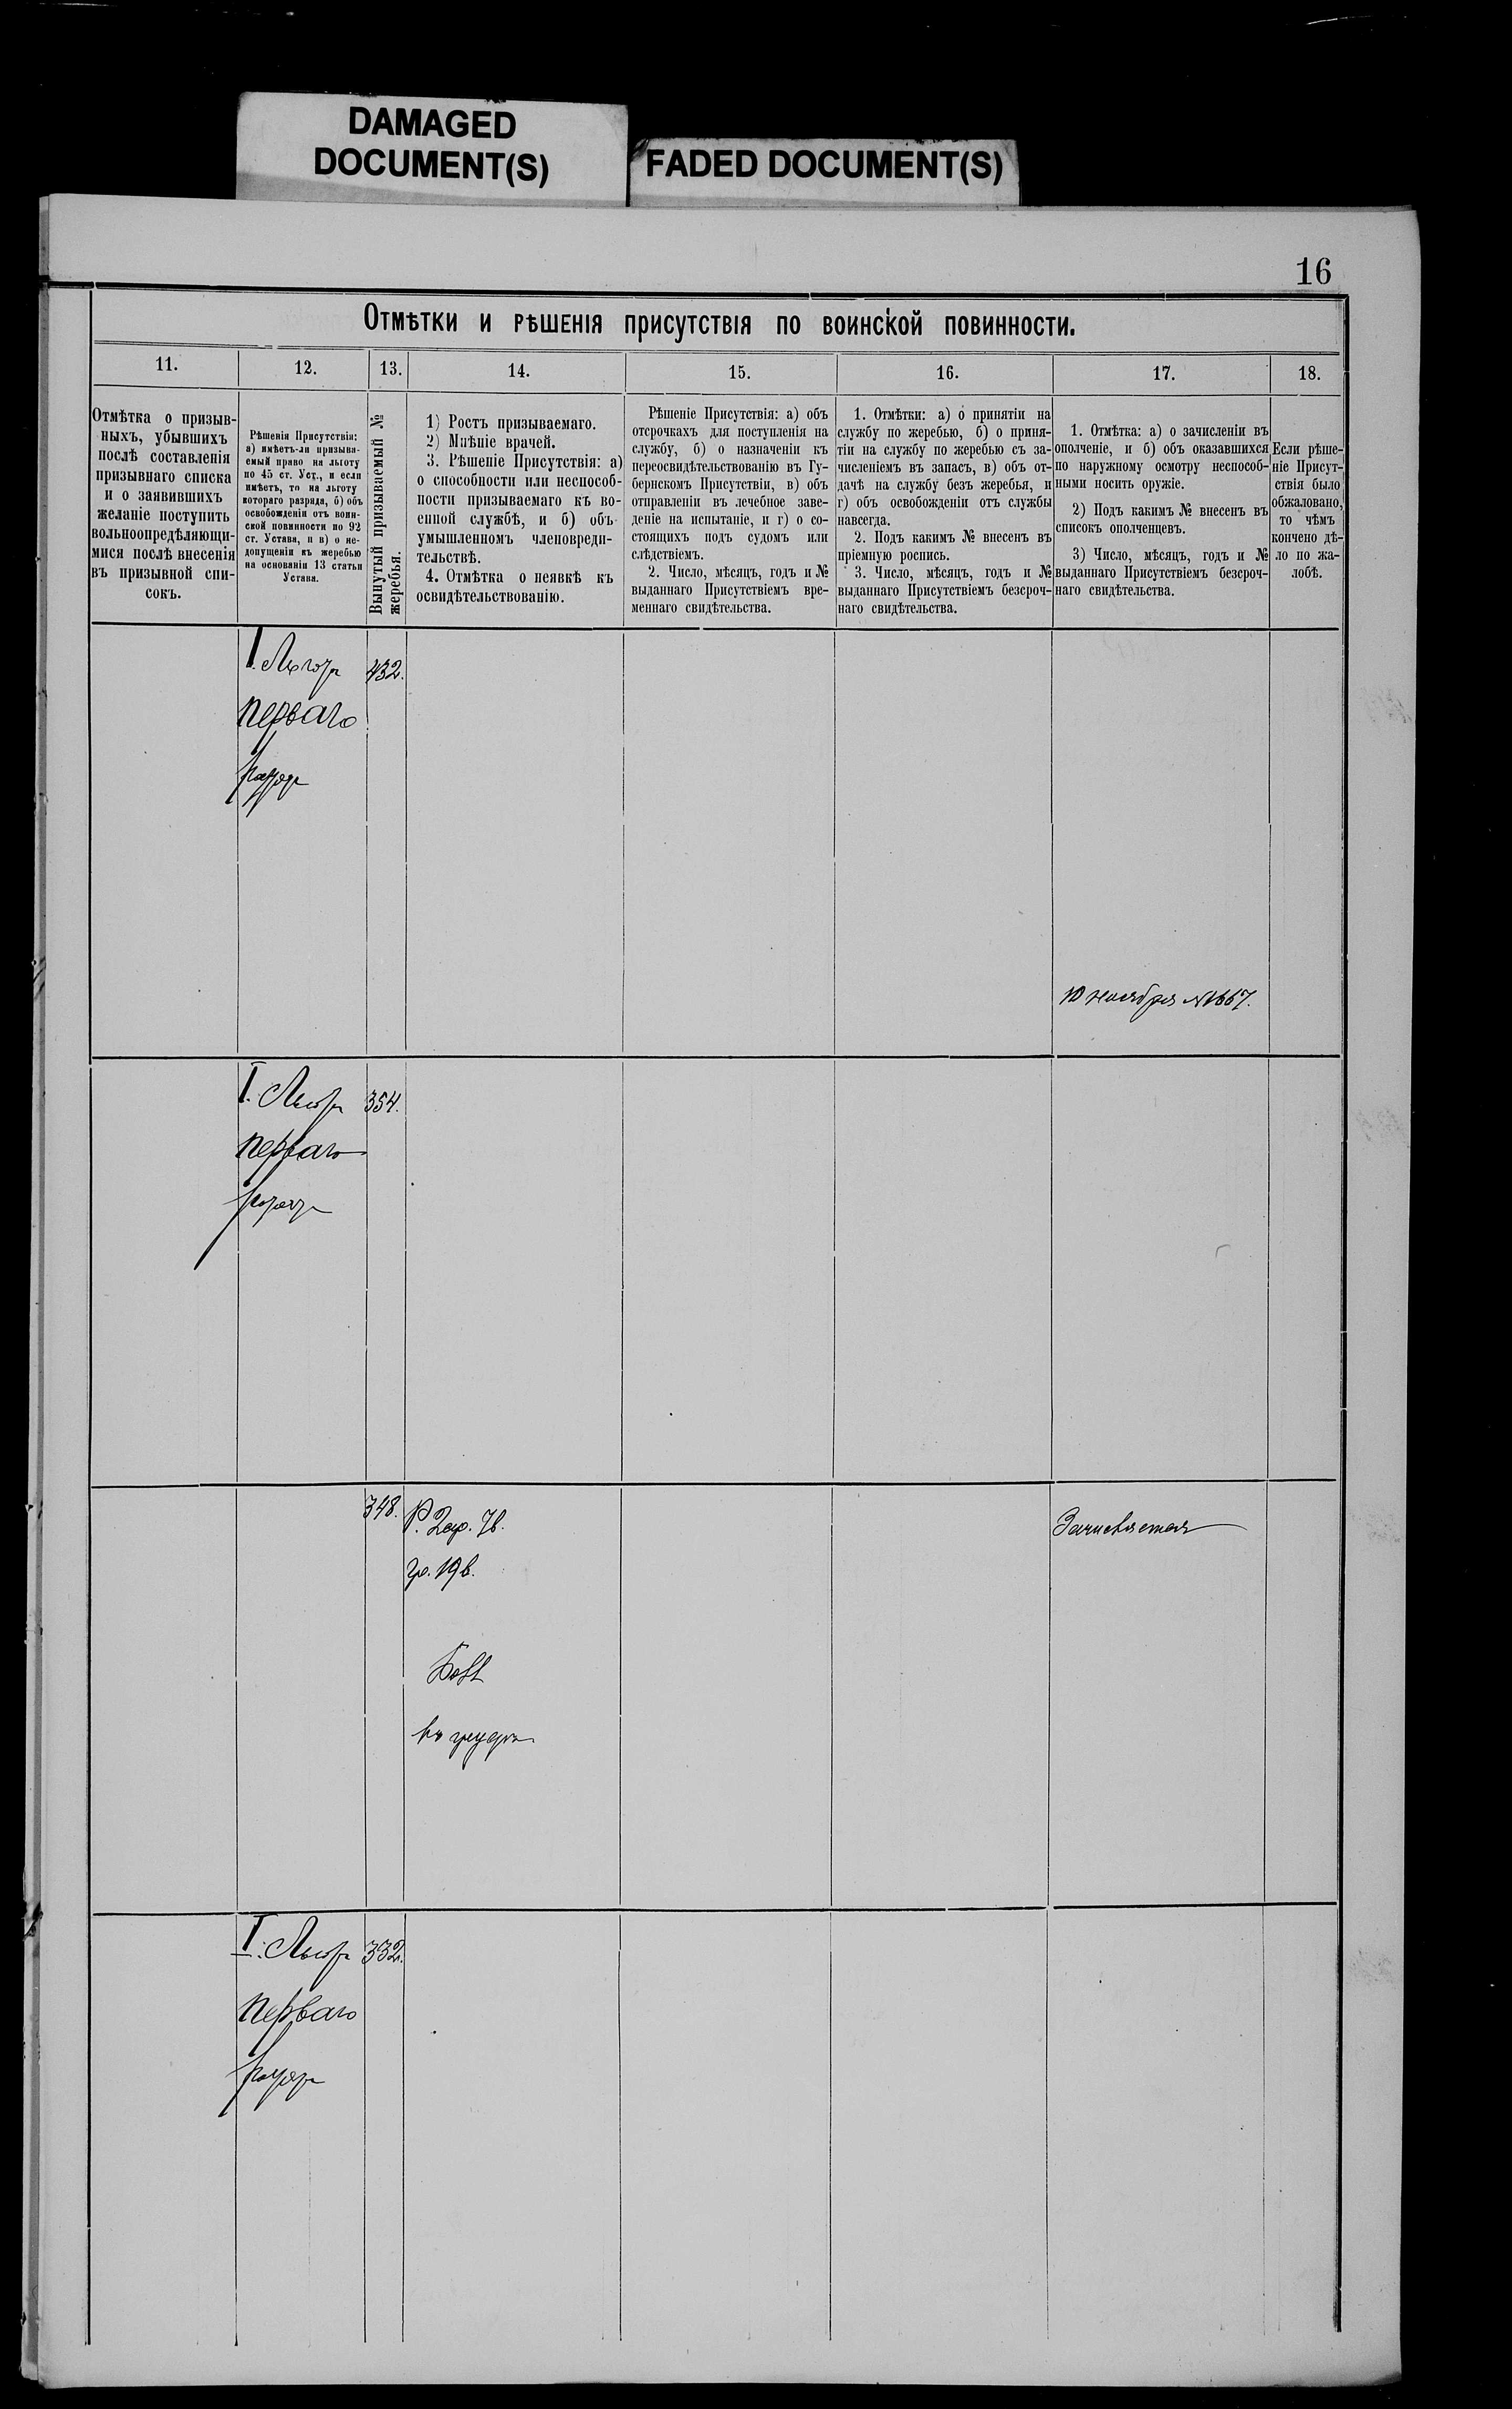 DAMAGED
DOCUMENT(S)
FADED DOCUMENT(S)
16
Отмѣтки и рѣшенія присутствія по воинской повинности.
11.
12.
13.
14.
15.
16.
17.
18.
Отмѣтка о призыв-
ныхъ, убывшихъ
послѣ составленія
призывнаго списка
и о заявившихъ
желаніе поступить
вольноопредѣляющи-
мися послѣ внесенія
въ призывной спи-
сокъ.
Рѣшенія Присутствія:
а) имѣетъ-ли призыва-
емый право на льготу
по 45 ст. Уст., и если
имѣетъ, то на льготу
котораго разряда, б) объ
освобожденіи отъ воин-
ской повинности по 92
ст. Устава, и в) о не-
допущеніи къ жеребью
на основаніи 13 статьи
Устава.
Вынутый призываемый №
жеребья.
1) Ростъ призываемаго.
2) Мнѣніе врачей.
3. Рѣшеніе Присутствія: а)
о способности или неспособ-
ности призываемаго къ во-
енной службѣ, и б) объ
умышленномъ членовреди-
тельствѣ.
4. Отмѣтка о неявкѣ къ
освидѣтельствованію.
Рѣшеніе Присутствія: а) объ
отсрочкахъ для поступленія на
службу, б) о назначеніи къ
переосвидѣтельствованію въ Гу-
бернскомъ Присутствіи, в) объ
отправленіи въ лечебное заве-
деніе на испытаніе, и г) о со-
стоящихъ подъ судомъ или
слѣдствіемъ.
2. Число, мѣсяцъ, годъ и №
выданнаго Присутствіемъ вре-
меннаго свидѣтельства.
1. Отмѣтки: а) о принятіи на
службу по жеребью, б) о приня-
тіи на службу по жеребью съ за-
численіемъ въ запасъ, в) объ от-
дачѣ на службу безъ жеребья, и
г) объ освобожденіи отъ службы
навсегда.
2. Подъ какимъ № внесенъ въ
пріемную роспись.
3. Число, мѣсяцъ, годъ и №
выданнаго Присутствіемъ безсроч-
наго свидѣтельства.
1. Отмѣтка: а) о зачисленіи въ
ополченіе, и б) объ оказавшихся
по наружному осмотру неспособ-
ными носить оружіе.
2) Подъ какимъ № внесенъ въ
списокъ ополченцевъ.
3) Число, мѣсяцъ, годъ и №
выданнаго Присутствіемъ безсроч-
наго свидѣтельства.
Если рѣше-
ніе Присут-
ствія было
обжаловано,
то чѣмъ
кончено дѣ-
ло по жа-
лобѣ.
I.
432.
перваго
10 ноября №1667.
I.
354.
перваго
348.
Р. 2ар. 7в.
гр. 19в.
Зачисляется
I.
332.
перваго